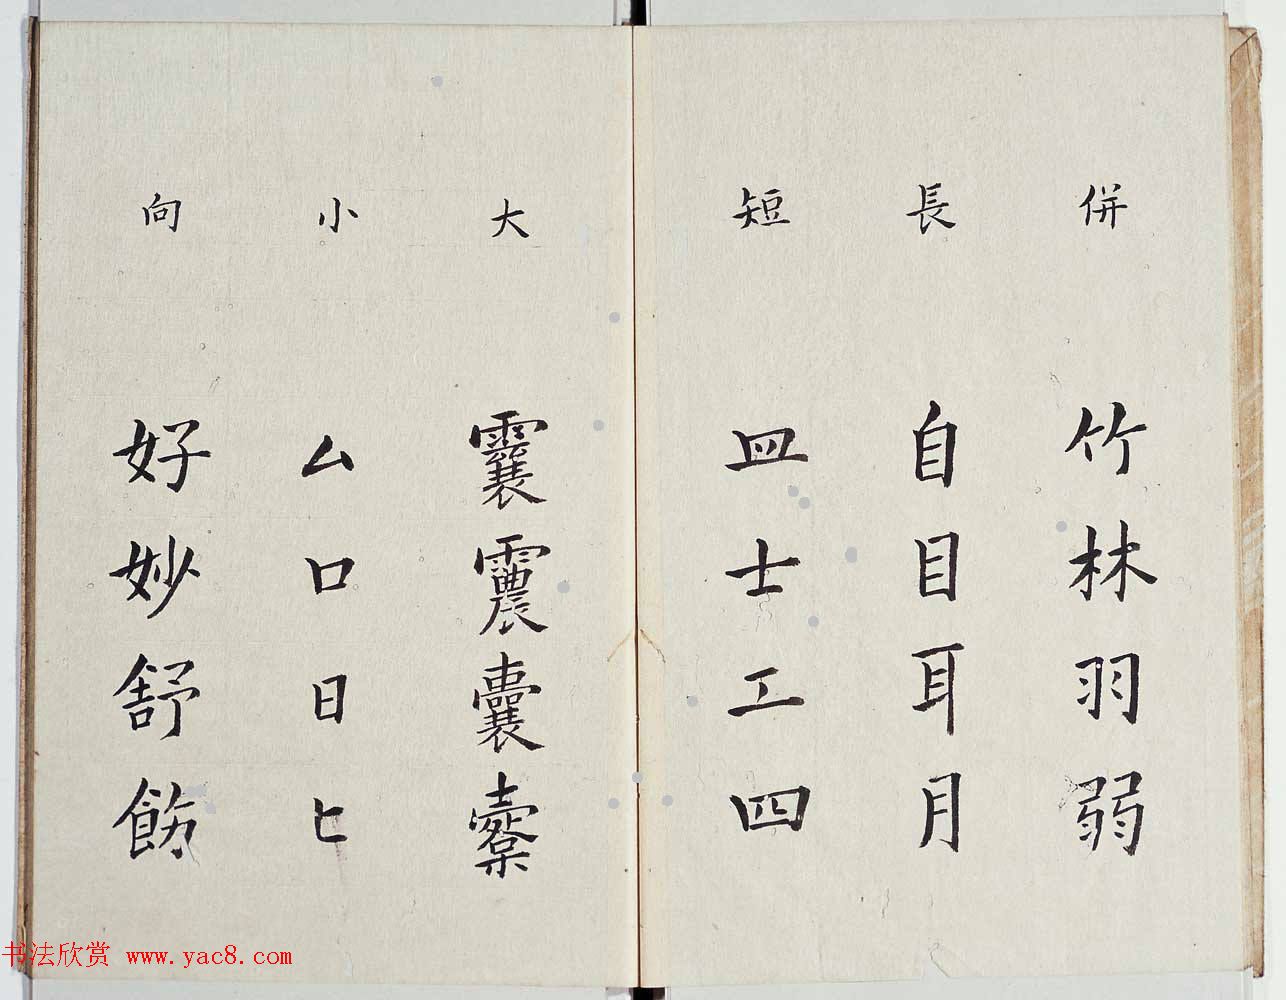 併 竹林羽弱
長 自目耳月
短 皿士工四
大 囊
小 厶口日匕
向 好妙舒飭
书法欣赏 www.yac8.com